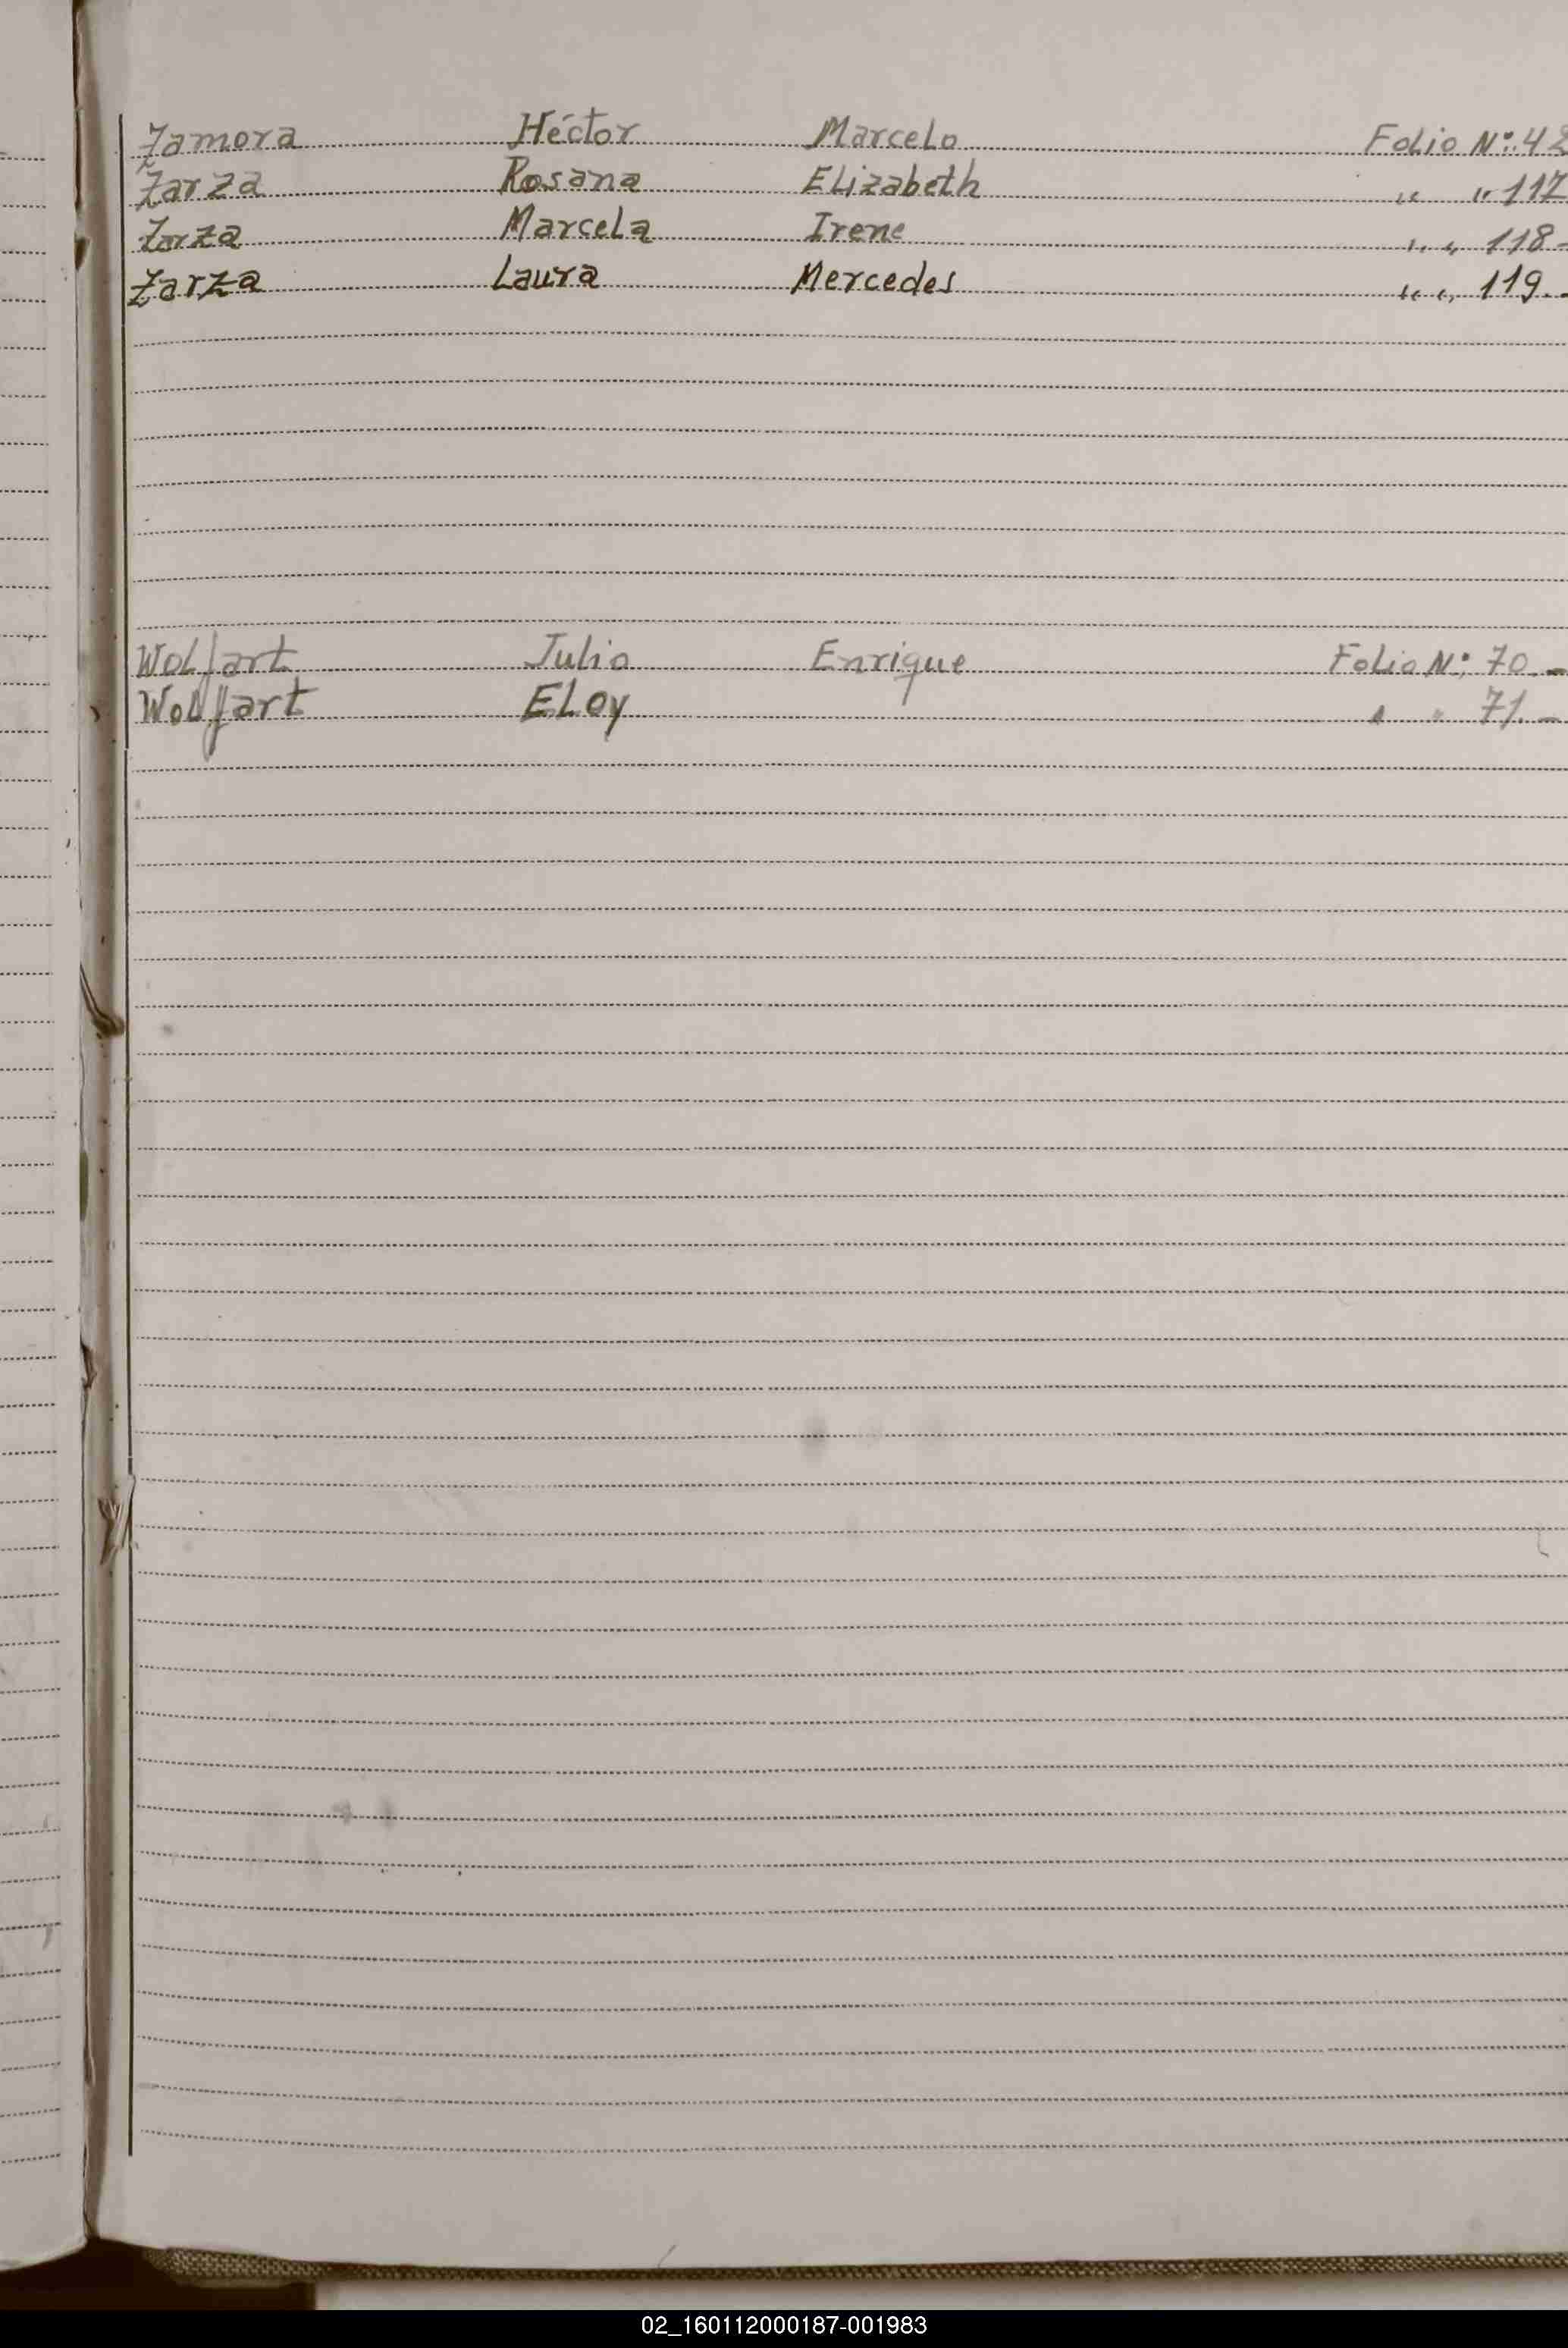 Zamora Héctor Marcelo Folio Nº: 42
Zarza Rosana Elizabeth " " 117
Zarza Marcela Irene " " 118.-
Zarza Laura Mercedes " " 119.-
Wolfart Julio Enrique Folio Nº: 70.-
Wolffart Eloy " " 71.-
02_160112000187-001983